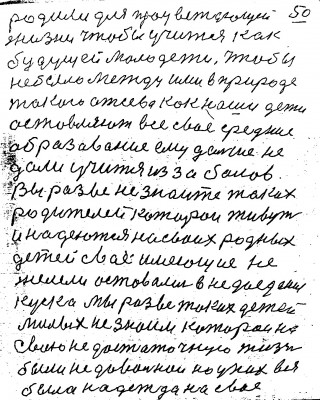 родили для процветающей 50
жизни чтобы учится как
будущей молодежи, чтобы
небыло между ими в природе
такого как наши дети
оставляют все своё средние
образавание ему дальше не
дали учится из за балов.
Вы разве не знаите таких
родителей которои живут
и надеются насваих родных
детей своё имеющие не
жилели оставалис в недоедании
куска мы разве таких детей
милых не знаим которои на
свою не достаточную жизн
были не довольной но у них вся
была надежда на своё